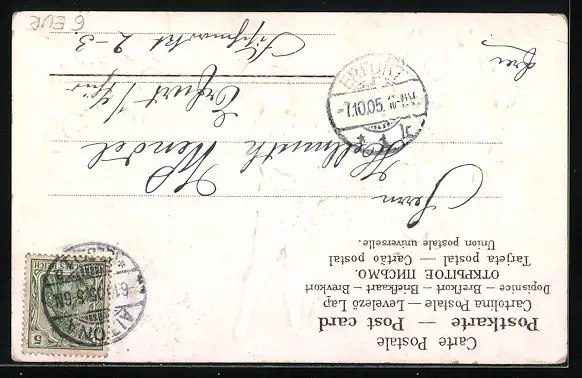 Carte Postale
Postkarte — Post card
Cartolina Postale — Levelező Lap
Dopisnice — Brefkort — Briefkaart — Brevkort
ОТКРЫТОЕ ПИСЬМО.
Tarjeta postal — Cartão postal
Union postale universelle.
5
ALTONA
Herrn
Hellmuth Wendel
Erfurt i/Thür
Fischmarkt 2-3.
frei
ERFURT
-7.10.05.
1r
6 EUR